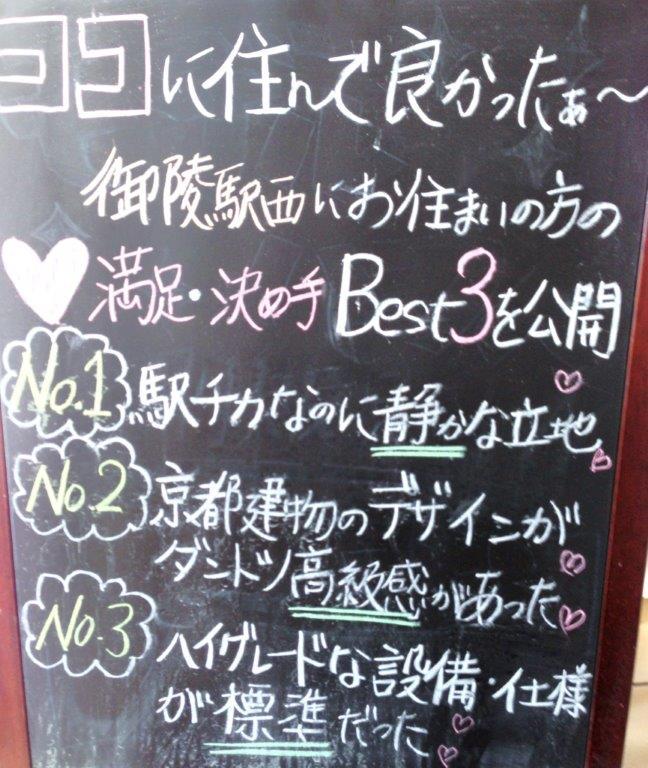 ココに住んで良かったぁ～
御陵駅西にお住まいの方の
満足・決め手Best3を公開
No.1 駅チカなのに静かな立地
No.2 京都建物のデザインが
ダントツ高級感があった
No.3 ハイグレードな設備・仕様
が標準だった